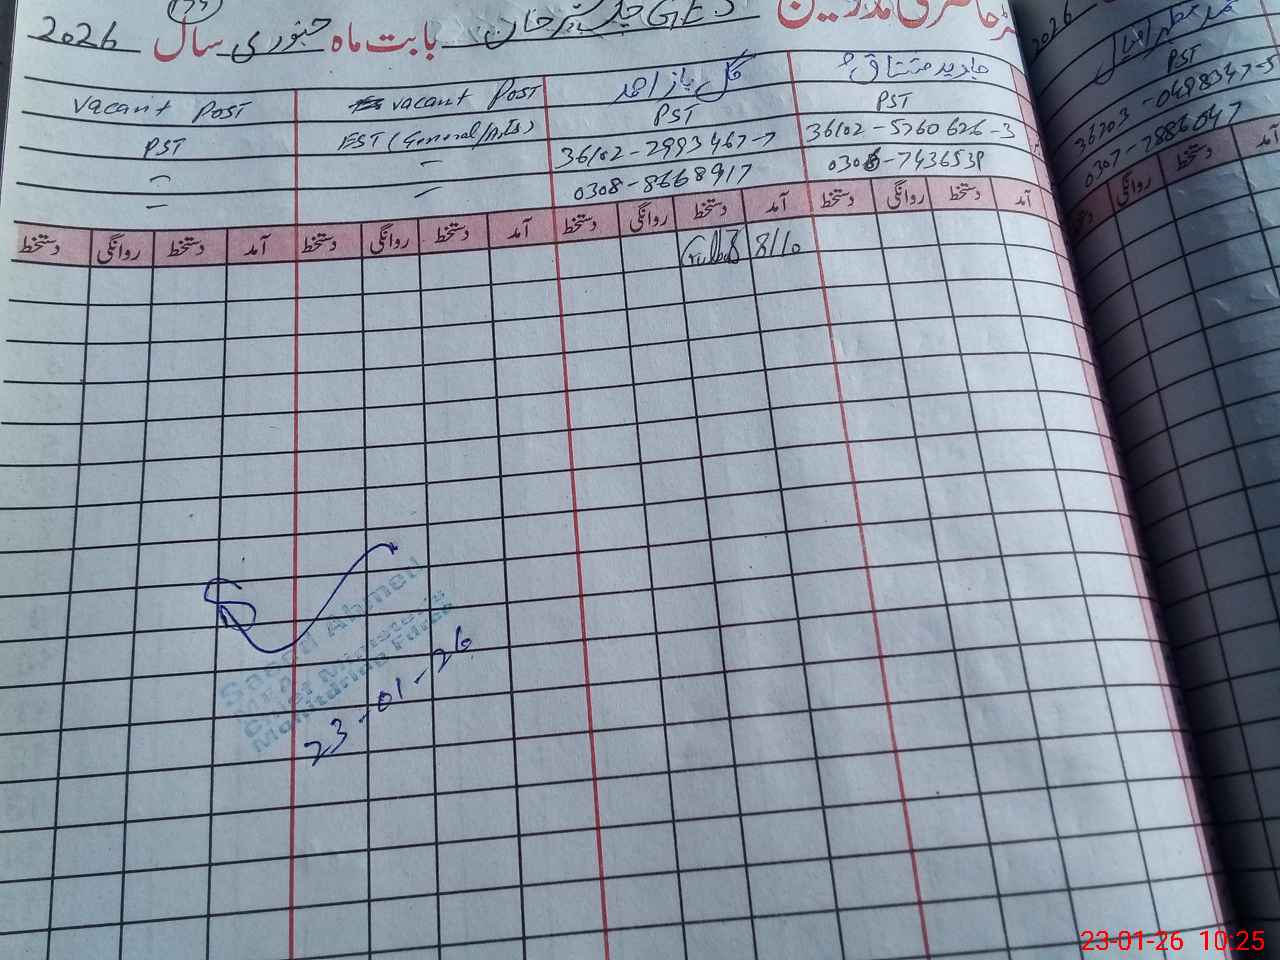 حاضری مدرسین GES چک شیر خان بابت ماہ جنوری سال 2026
vacant Post
PST
–
–
vacant Post
EST (General/Arts)
–
–
گل باز احمد
PST
36102-2993467-7
0308-8668917
جاوید مشتاق
PST
36102-5260626-3
7436539
2026
PST
36203-0498347-5
0307-7886047
آمد دستخط روانگی دستخط آمد دستخط روانگی دستخط آمد دستخط روانگی دستخط آمد دستخط روانگی دستخط
آمد دستخط روانگی
8/10
Saeed Ahmed
MEA
Chief Minister's
Monitoring Force
23-01-26
23-01-26 10:25